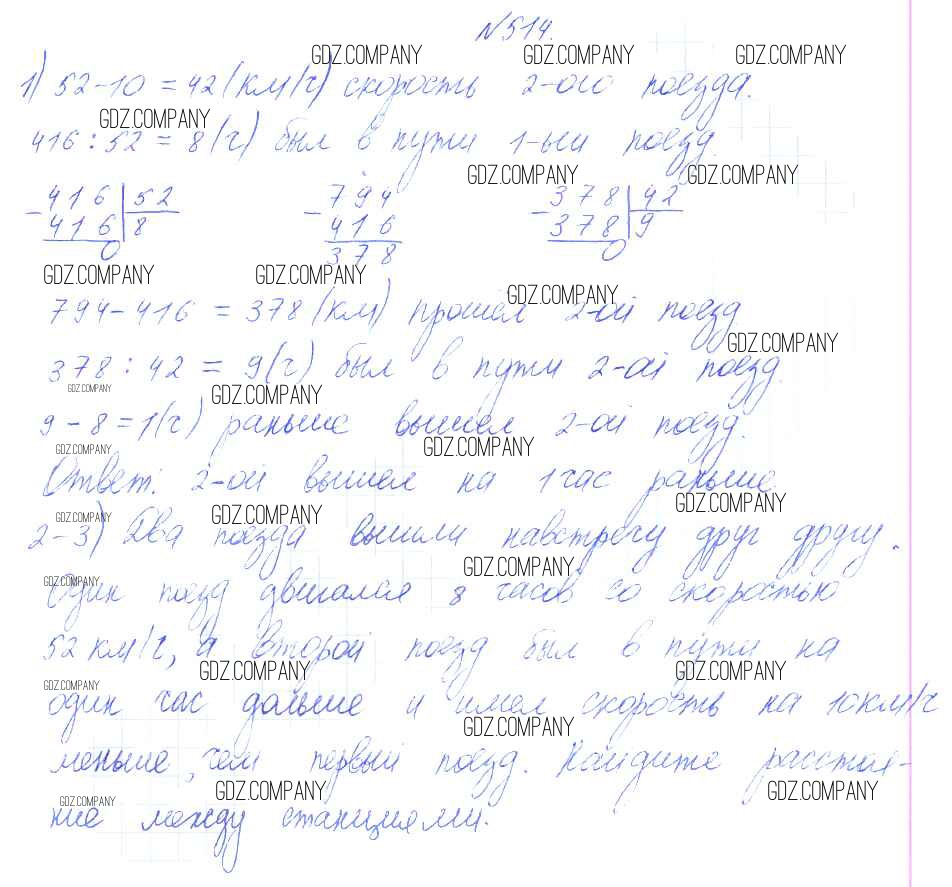 №514.
GDZ.COMPANY GDZ.COMPANY GDZ.COMPANY
1) 52-10 = 42 (км/ч) скорость 2-ого поезда.
GDZ.COMPANY
416 : 52 = 8 (ч) был в пути 1-ый поезд.
GDZ.COMPANY GDZ.COMPANY
- 416 | 52 - 794 - 378 | 42
416 | 8 416 378 | 9
0 378 0
GDZ.COMPANY GDZ.COMPANY
GDZ.COMPANY
794 - 416 = 378 (км) прошёл 2-ой поезд
GDZ.COMPANY
378 : 42 = 9 (ч) был в пути 2-ой поезд.
GDZ.COMPANY GDZ.COMPANY
9 - 8 = 1 (ч) раньше вышел 2-ой поезд.
GDZ.COMPANY GDZ.COMPANY
Ответ: 2-ой вышел на 1 час раньше
GDZ.COMPANY GDZ.COMPANY GDZ.COMPANY
2-3) Два поезда вышли навстречу друг другу.
GDZ.COMPANY GDZ.COMPANY
Один поезд двигался 8 часов со скоростью
52 км/ч, а второй поезд был в пути на
GDZ.COMPANY GDZ.COMPANY GDZ.COMPANY
один час дольше и имел скорость на 10 км/ч
GDZ.COMPANY
меньше, чем первый поезд. Найдите расстоя-
GDZ.COMPANY GDZ.COMPANY GDZ.COMPANY
ние между станциями.